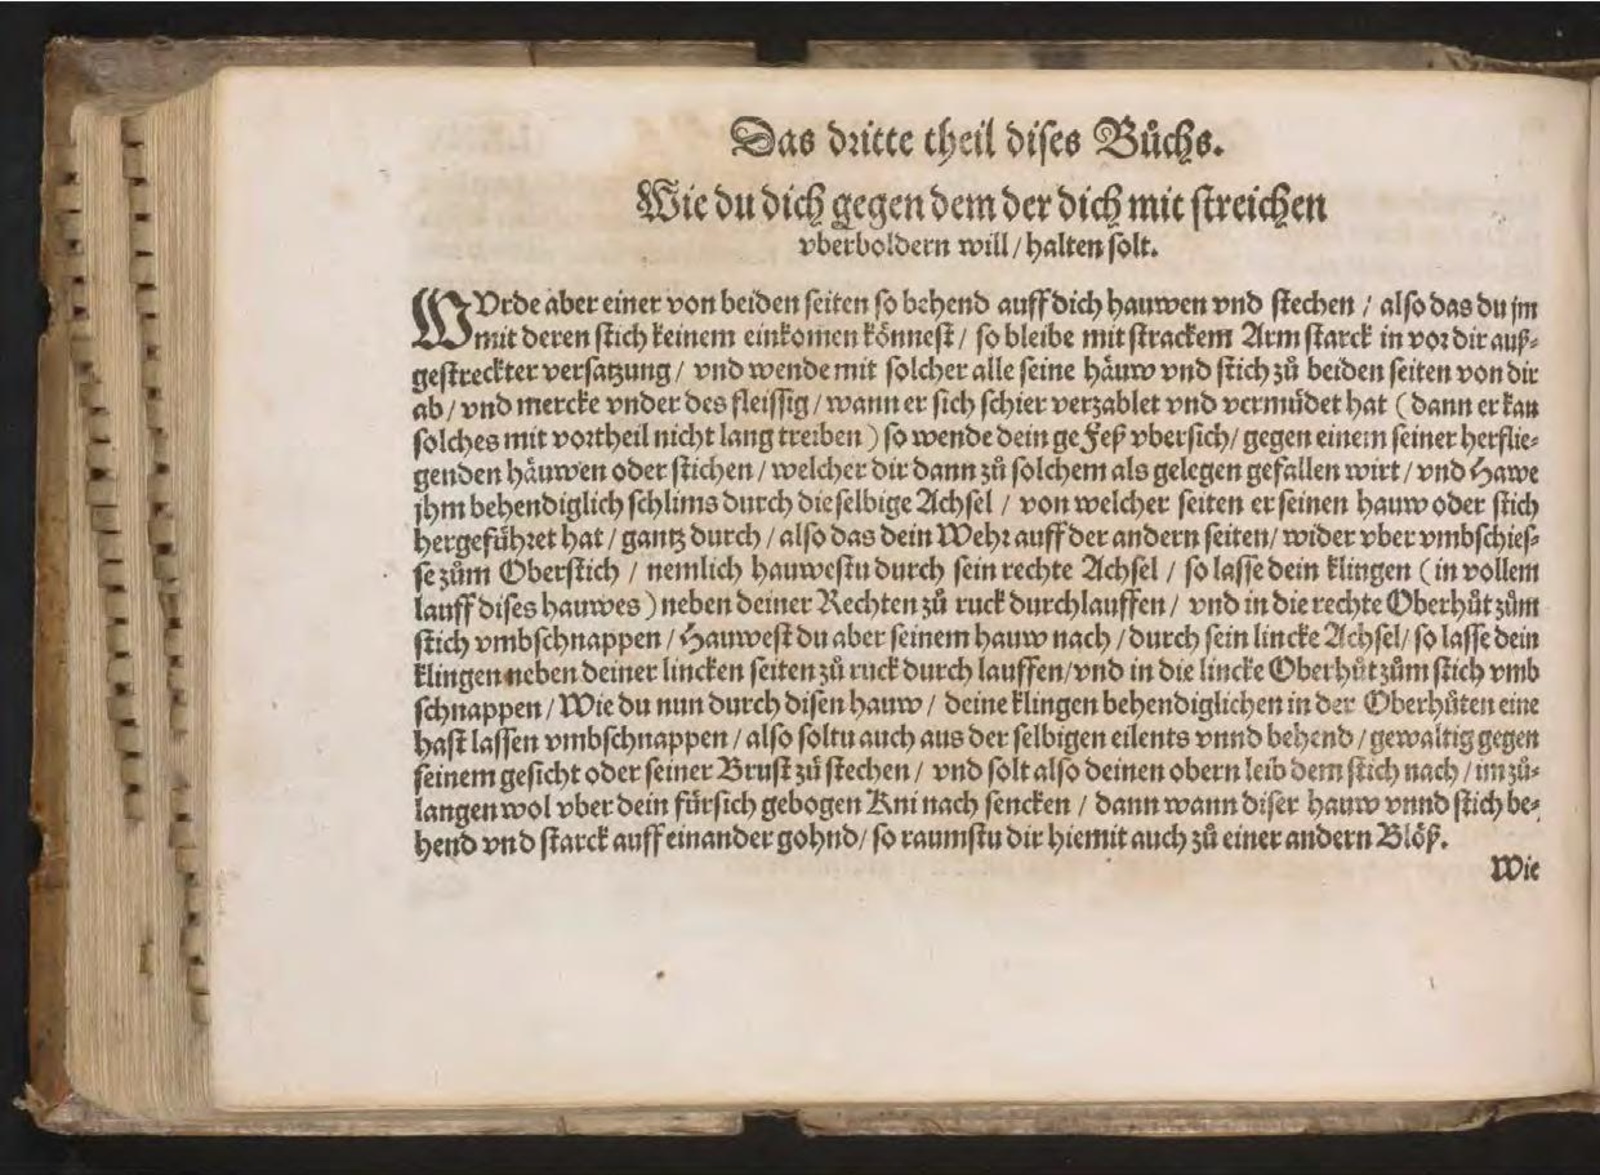 Das dritte theil dises Bůchs.
Wie du dich gegen dem der dich mit streichen
vberboldern will / halten solt.
WUrde aber einer von beiden seiten so behend auff dich hauwen vnd stechen / also das du jm
mit deren stich keinem einkomen könnest / so bleibe mit strackem Arm starck in vor dir auß-
gestreckter versatzung / vnd wende mit solcher alle seine häuw vnd stich zů beiden seiten von dir
ab / vnd mercke vnder des fleissig / wann er sich schier verzablet vnd vermüdet hat ( dann er kan
solches mit vortheil nicht lang treiben ) so wende dein gefeß vbersich / gegen einem seiner herflie-
genden häuwen oder stichen / welcher dir dann zů solchem als gelegen gefallen wirt / vnd Hawe
jhm behendiglich schlims durch dieselbige Achsel / von welcher seiten er seinen hauw oder stich
hergeführet hat / gantz durch / also das dein Wehr auff der andern seiten / wider vber vmbschies-
se zům Oberstich / nemlich hauwestu durch sein rechte Achsel / so lasse dein klingen ( in vollem
lauff dises hauwes ) neben deiner Rechten zů ruck durchlauffen / vnd in die rechte Oberhůt zům
stich vmbschnappen / Hauwest du aber seinem hauw nach / durch sein lincke Achsel / so lasse dein
klingen neben deiner lincken seiten zů ruck durch lauffen / vnd in die lincke Oberhůt zům stich vmb
schnappen / Wie du nun durch disen hauw / deine klingen behendiglichen in der Oberhůten eine
hast lassen vmbschnappen / also soltu auch aus der selbigen eilents vnnd behend / gewaltig gegen
seinem gesicht oder seiner Brust zů stechen / vnd solt also deinen obern leib dem stich nach / im zů-
langen wol vber dein fürsich gebogen Kni nach sencken / dann wann diser hauw vnnd stich be-
hend vnd starck auff einander gohnd / so raumstu dir hiemit auch zů einer andern Blöß.
Wie